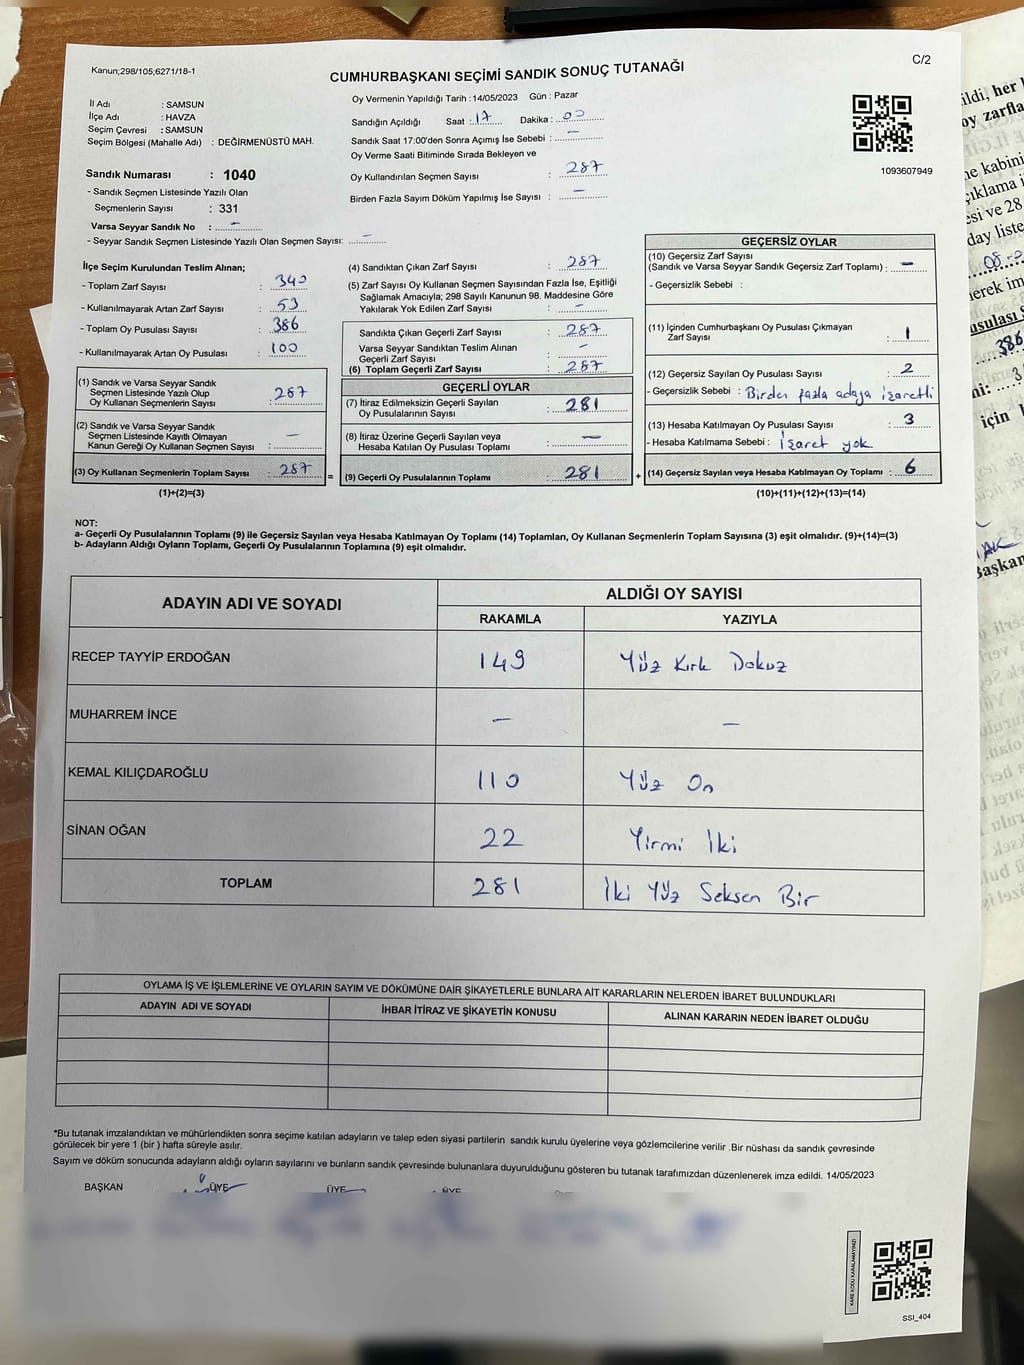 C/2
Kanun;298/105;6271/18-1
CUMHURBAŞKANI SEÇİMİ SANDIK SONUÇ TUTANAĞI
İl Adı : SAMSUN
İlçe Adı : HAVZA
Seçim Çevresi : SAMSUN
Seçim Bölgesi (Mahalle Adı) : DEĞİRMENÜSTÜ MAH.
Sandık Numarası : 1040
- Sandık Seçmen Listesinde Yazılı Olan
Seçmenlerin Sayısı : 331
Varsa Seyyar Sandık No : -
- Seyyar Sandık Seçmen Listesinde Yazılı Olan Seçmen Sayısı: -
Oy Vermenin Yapıldığı Tarih :14/05/2023 Gün : Pazar
Sandığın Açıldığı Saat : 17 Dakika : 00
Sandık Saat 17:00'den Sonra Açımış İse Sebebi : -
Oy Verme Saati Bitiminde Sırada Bekleyen ve
Oy Kullandırılan Seçmen Sayısı : 287
Birden Fazla Sayım Döküm Yapılmış İse Sayısı : -
1093607949
İlçe Seçim Kurulundan Teslim Alınan;
- Toplam Zarf Sayısı : 340
- Kullanılmayarak Artan Zarf Sayısı : 53
- Toplam Oy Pusulası Sayısı : 386
- Kullanılmayarak Artan Oy Pusulası : 100
(1) Sandık ve Varsa Seyyar Sandık
Seçmen Listesinde Yazılı Olup
Oy Kullanan Seçmenlerin Sayısı : 287
(2) Sandık ve Varsa Seyyar Sandık
Seçmen Listesinde Kayıtlı Olmayan
Kanun Gereği Oy Kullanan Seçmen Sayısı : -
(3) Oy Kullanan Seçmenlerin Toplam Sayısı : 287 =
(1)+(2)=(3)
(4) Sandıktan Çıkan Zarf Sayısı : 287
(5) Zarf Sayısı Oy Kullanan Seçmen Sayısından Fazla İse, Eşitliği
Sağlamak Amacıyla; 298 Sayılı Kanunun 98. Maddesine Göre
Yakılarak Yok Edilen Zarf Sayısı : -
Sandıkta Çıkan Geçerli Zarf Sayısı : 287
Varsa Seyyar Sandıktan Teslim Alınan
Geçerli Zarf Sayısı : -
(6) Toplam Geçerli Zarf Sayısı : 287
GEÇERLİ OYLAR
(7) İtiraz Edilmeksizin Geçerli Sayılan
Oy Pusulalarının Sayısı : 281
(8) İtiraz Üzerine Geçerli Sayılan veya
Hesaba Katılan Oy Pusulası Toplamı : -
(9) Geçerli Oy Pusulalarının Toplamı : 281 +
GEÇERSİZ OYLAR
(10) Geçersiz Zarf Sayısı
(Sandık ve Varsa Seyyar Sandık Geçersiz Zarf Toplamı) : -
- Geçersizlik Sebebi :
(11) İçinden Cumhurbaşkanı Oy Pusulası Çıkmayan
Zarf Sayısı : 1
(12) Geçersiz Sayılan Oy Pusulası Sayısı : 2
- Geçersizlik Sebebi : Birden fazla adaya işaretli
(13) Hesaba Katılmayan Oy Pusulası Sayısı : 3
- Hesaba Katılmama Sebebi : İşaret yok
(14) Geçersiz Sayılan veya Hesaba Katılmayan Oy Toplamı : 6
(10)+(11)+(12)+(13)=(14)
NOT:
a- Geçerli Oy Pusulalarının Toplamı (9) ile Geçersiz Sayılan veya Hesaba Katılmayan Oy Toplamı (14) Toplamları, Oy Kullanan Seçmenlerin Toplam Sayısına (3) eşit olmalıdır. (9)+(14)=(3)
b- Adayların Aldığı Oyların Toplamı, Geçerli Oy Pusulalarının Toplamına (9) eşit olmalıdır.
ADAYIN ADI VE SOYADI ALDIĞI OY SAYISI
RAKAMLA YAZIYLA
RECEP TAYYİP ERDOĞAN 149 Yüz Kırk Dokuz
MUHARREM İNCE - -
KEMAL KILIÇDAROĞLU 110 Yüz On
SİNAN OĞAN 22 Yirmi İki
TOPLAM 281 İki Yüz Seksen Bir
OYLAMA İŞ VE İŞLEMLERİNE VE OYLARIN SAYIM VE DÖKÜMÜNE DAİR ŞİKAYETLERLE BUNLARA AİT KARARLARIN NELERDEN İBARET BULUNDUKLARI
ADAYIN ADI VE SOYADI İHBAR İTİRAZ VE ŞİKAYETİN KONUSU ALINAN KARARIN NEDEN İBARET OLDUĞU
*Bu tutanak imzalandıktan ve mühürlendikten sonra seçime katılan adayların ve talep eden siyasi partilerin sandık kurulu üyelerine veya gözlemcilerine verilir .Bir nüshası da sandık çevresinde
görülecek bir yere 1 (bir ) hafta süreyle asılır.
Sayım ve döküm sonucunda adayların aldığı oyların sayılarını ve bunların sandık çevresinde bulunanlara duyurulduğunu gösteren bu tutanak tarafımızdan düzenlenerek imza edildi. 14/05/2023
BAŞKAN ÜYE ÜYE ÜYE
KARE KODU KARALAMAYINIZ!
SSI_404